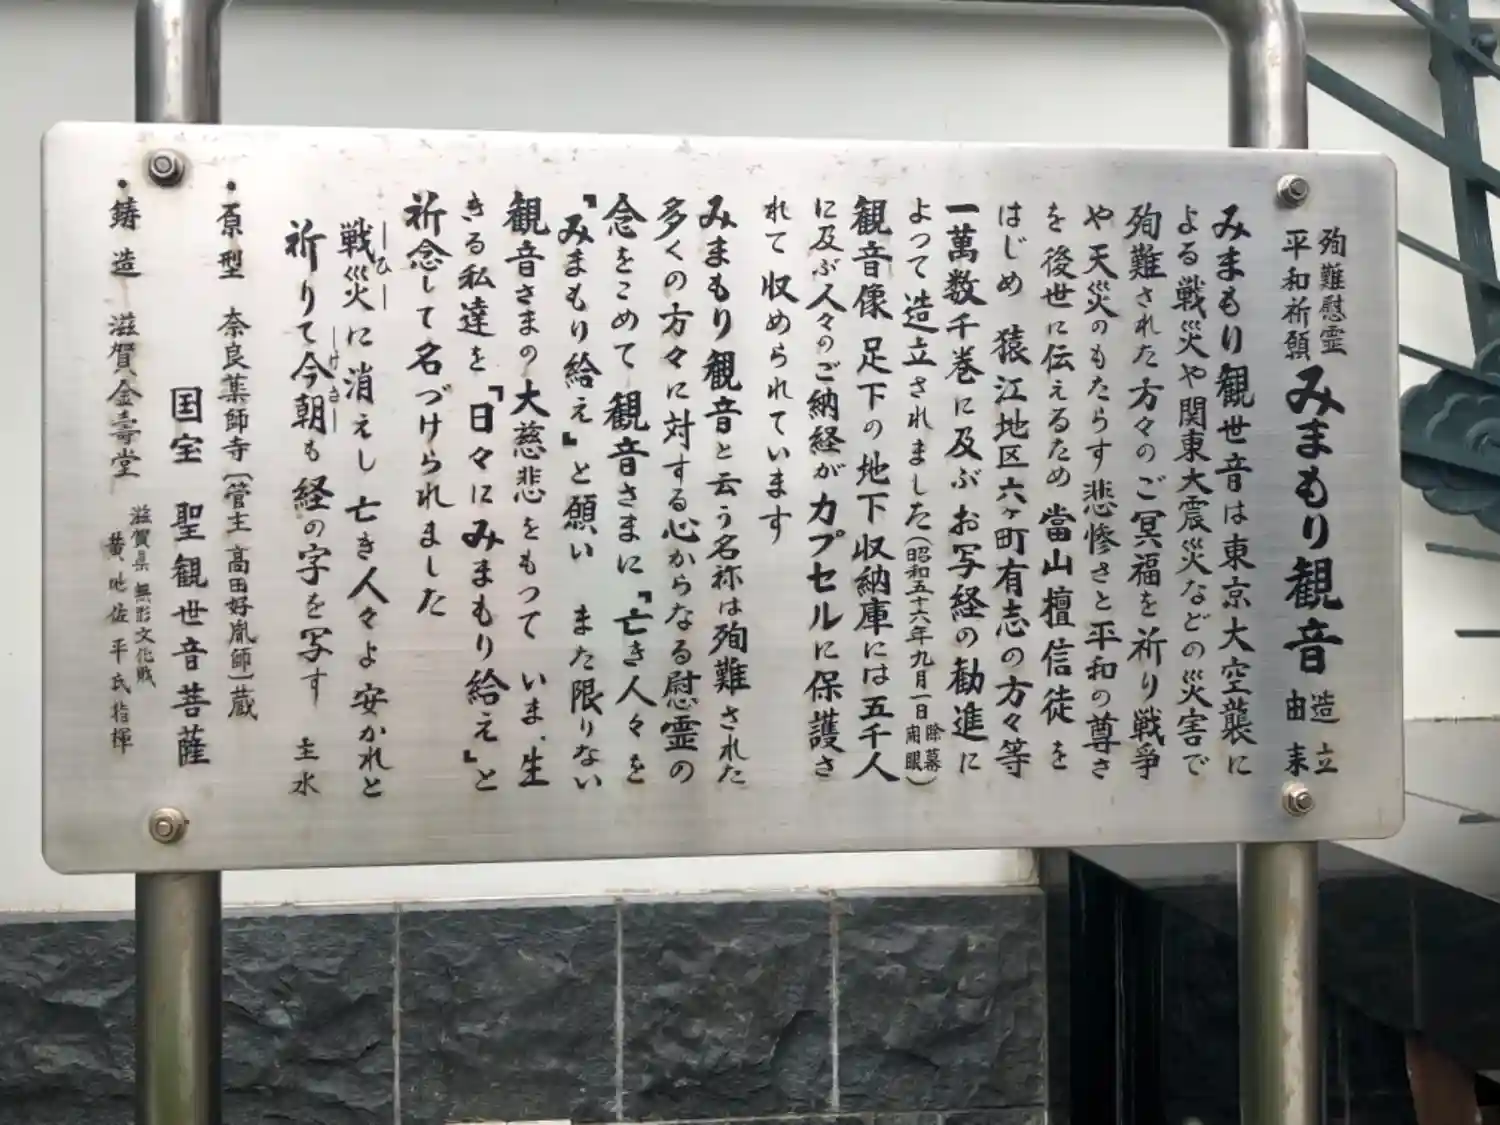 殉難慰霊
平和祈願
みまもり観音
造立
由来
みまもり観世音は東京大空襲に
よる戦災や関東大震災などの災害で
殉難された方々のご冥福を祈り戦争
や天災のもたらす悲惨さと平和の尊さ
を後世に伝えるため 當山檀信徒を
はじめ 猿江地区六ヶ町有志の方々等
一萬数千巻に及ぶお写経の勧進に
よって造立されました(昭和五十六年九月一日 除幕 開眼)
観音像 足下の地下収納庫には五千人
に及ぶ人々のご納経がカプセルに保護さ
れて収められています
みまもり観音と云う名称は殉難された
多くの方々に対する心からなる慰霊の
念をこめて 観音さまに『亡き人々を
『みまもり給え』と願い また限りない
観音さまの大慈悲をもつて いま、生
きる私達を『日々にみまもり給え』と
祈念して名づけられました
戦災に消えし亡き人々よ安かれと
ひ
祈りて今朝も経の字を写す 主水
けさ
・原型 奈良薬師寺(管主 高田好胤師)蔵
国宝 聖観世音菩薩
・鋳造 滋賀金壽堂
滋賀県無形文化財
黄地佐平氏指揮